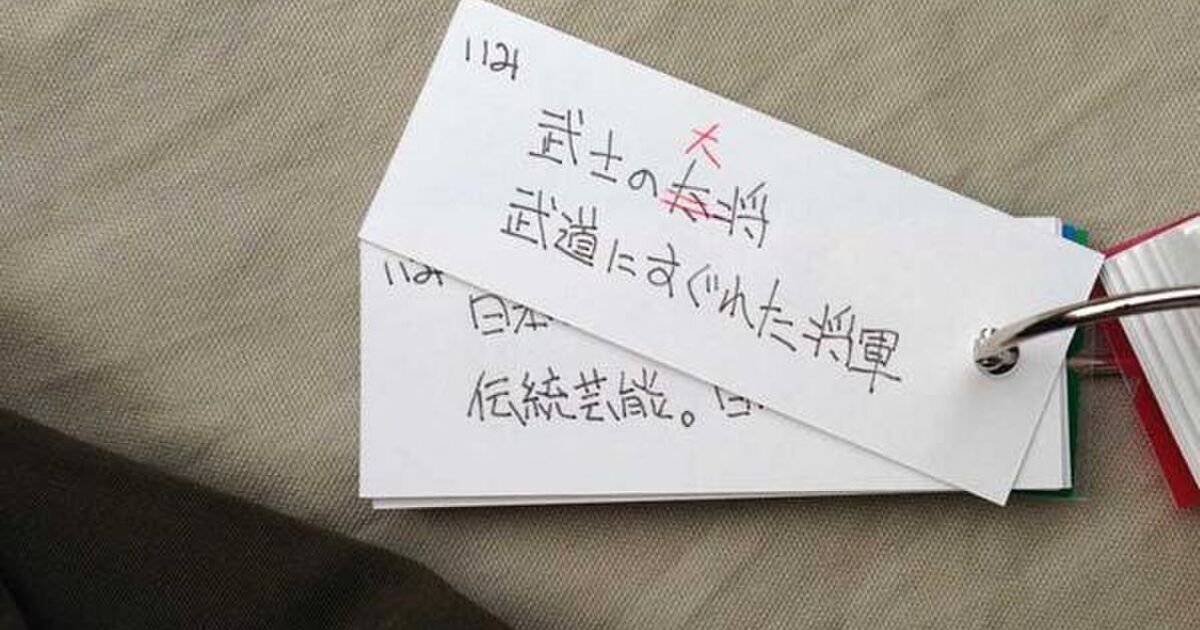 112
武士の大将
武道にすぐれた将軍
112
日本
伝統芸能。日